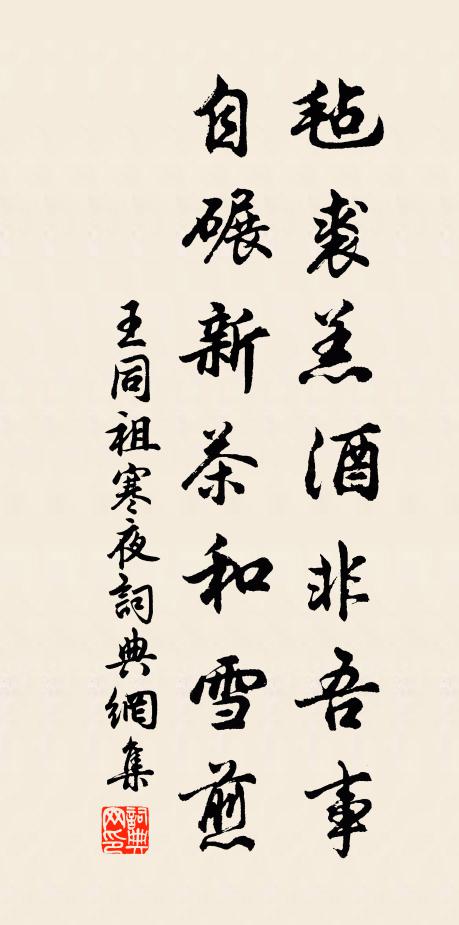 毡裘羔酒非吾事
自碾新茶和雪煎
王同祖寒夜詞典網集
詞典网印